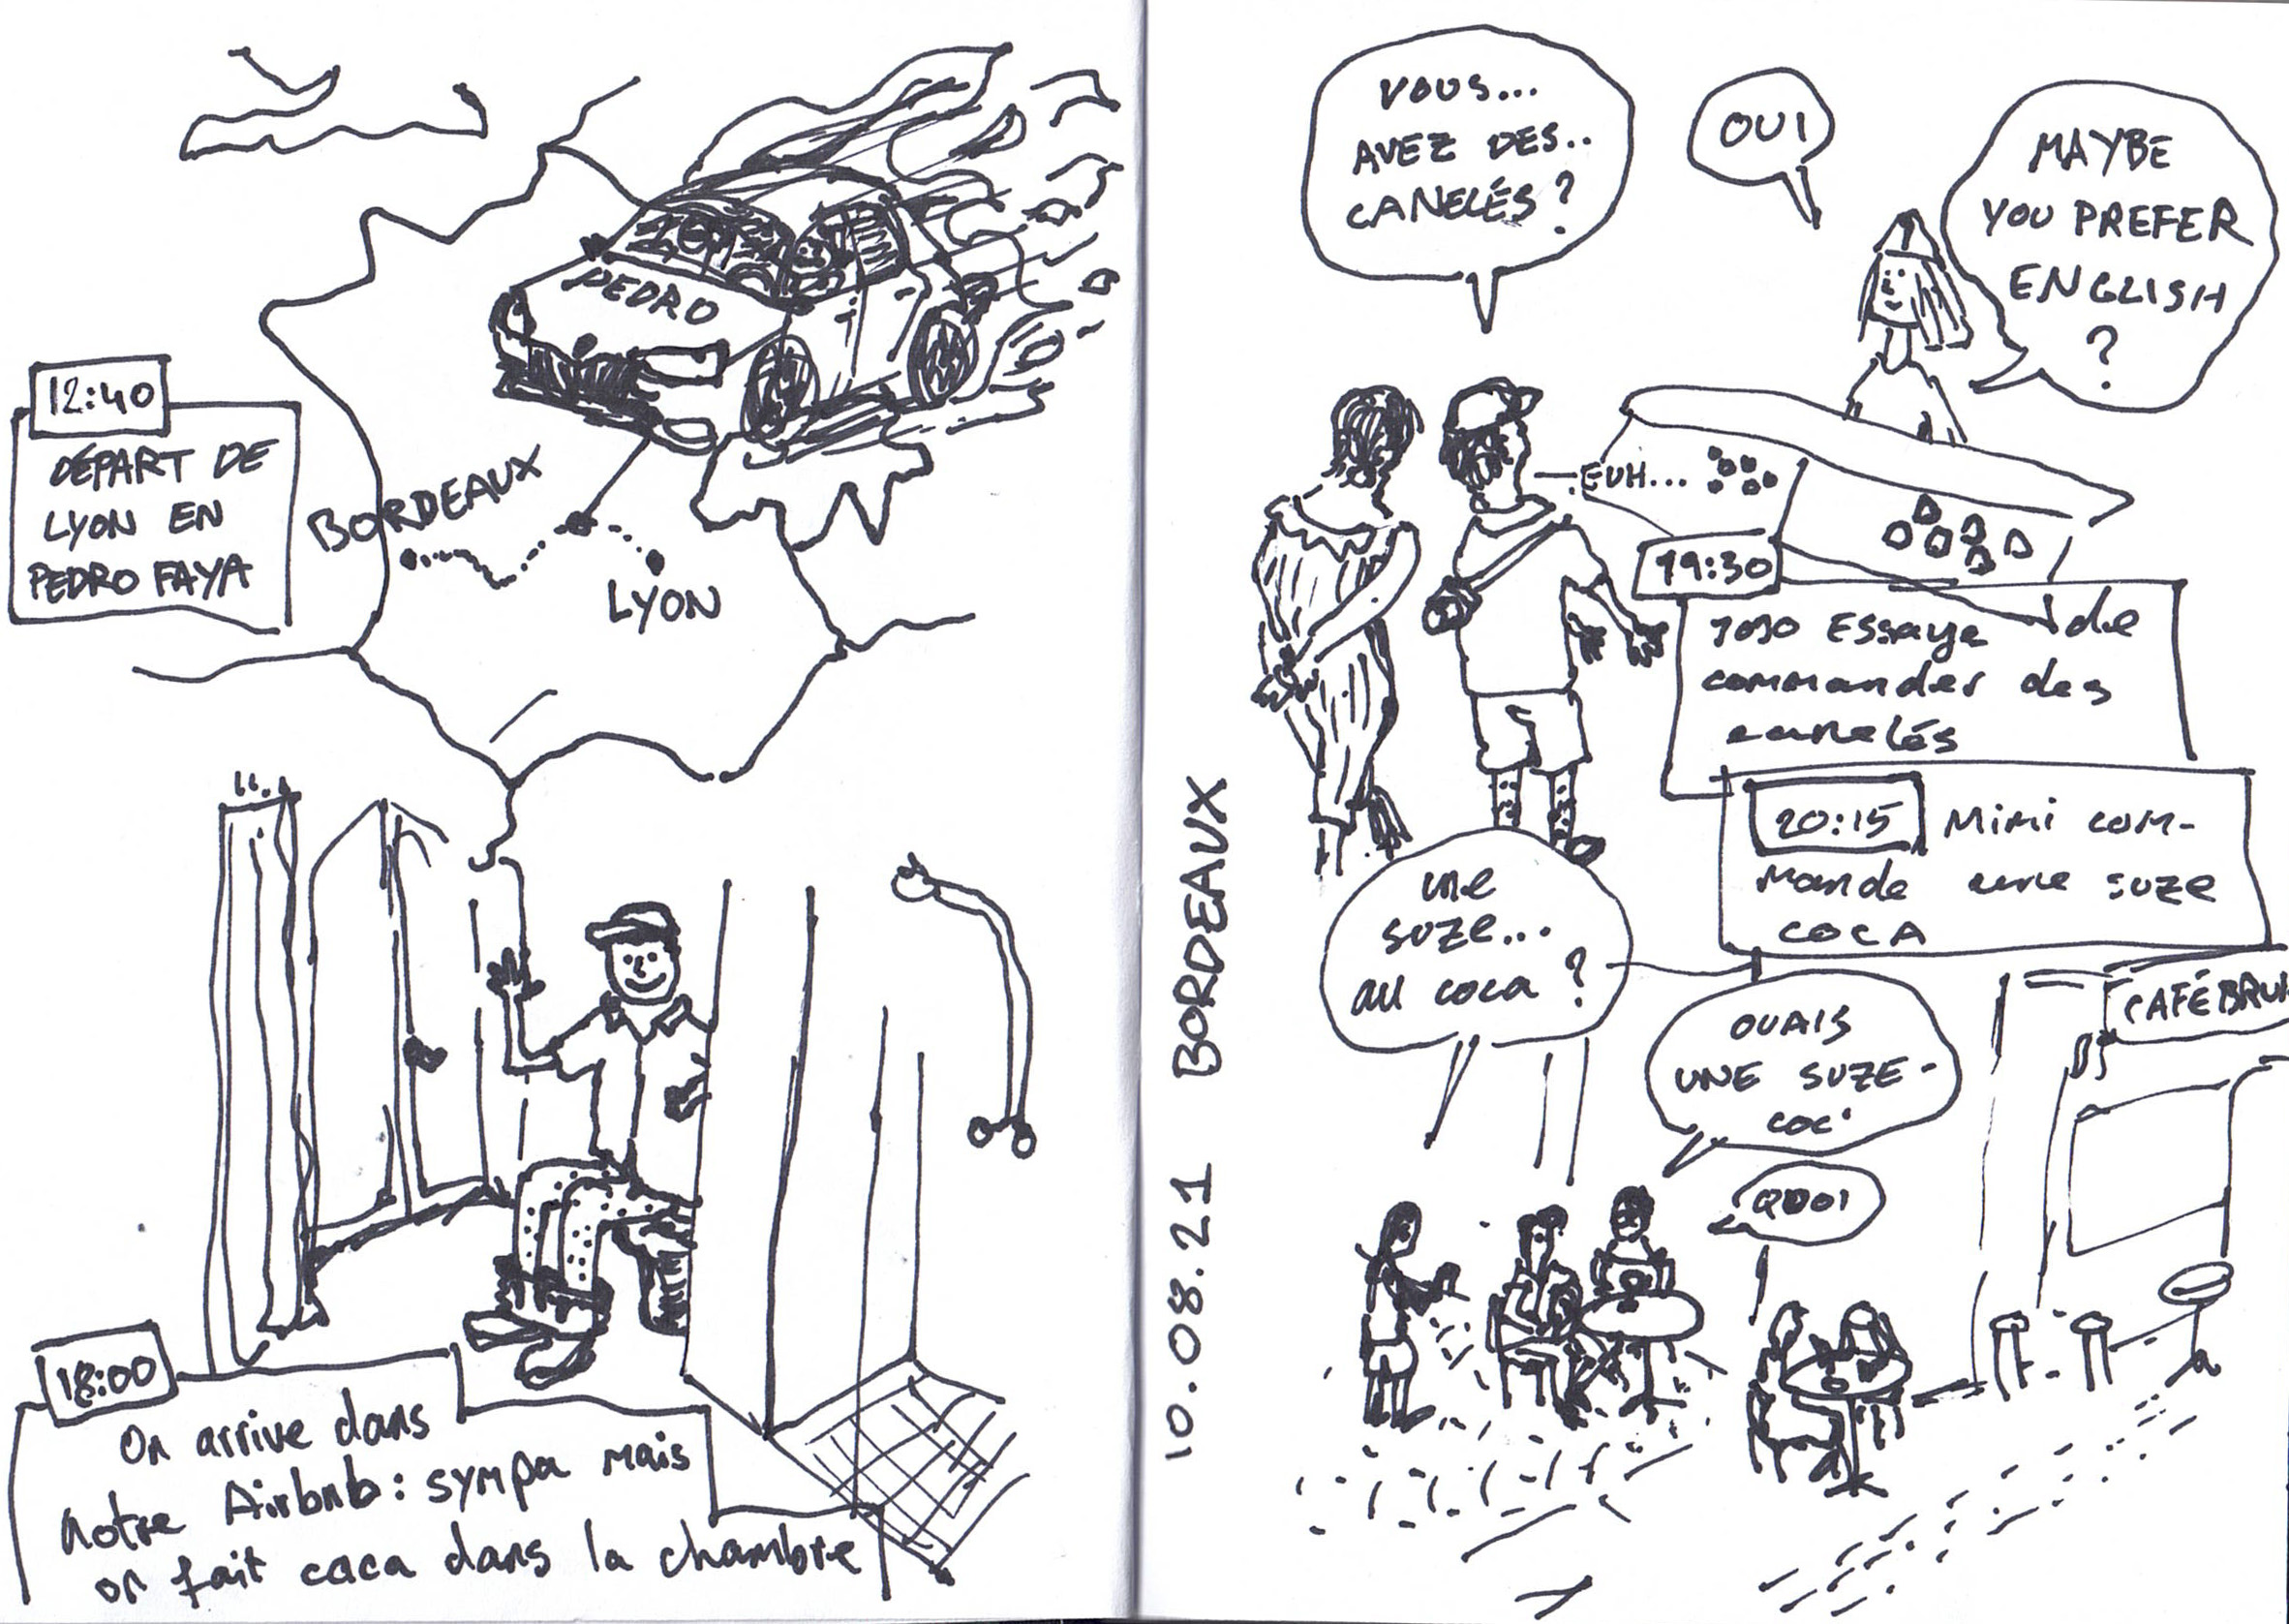 12:40
DÉPART DE
LYON EN
PEDRO FAYA
PEDRO
BORDEAUX
LYON
18:00
On arrive dans
notre Airbnb: sympa mais
on fait caca dans la chambre
10.08.21 BORDEAUX
VOUS...
AVEZ DES..
CANELÉS?
OUI
MAYBE
YOU PREFER
ENGLISH
?
EUH...
19:30
Essaye de
commander des
canelés
20:15 Mimi com-
mande une suze
COCA
une
suze...
au coca?
OUAIS
UNE SUZE-
COC'
QUOI
CAFÉ BRUN